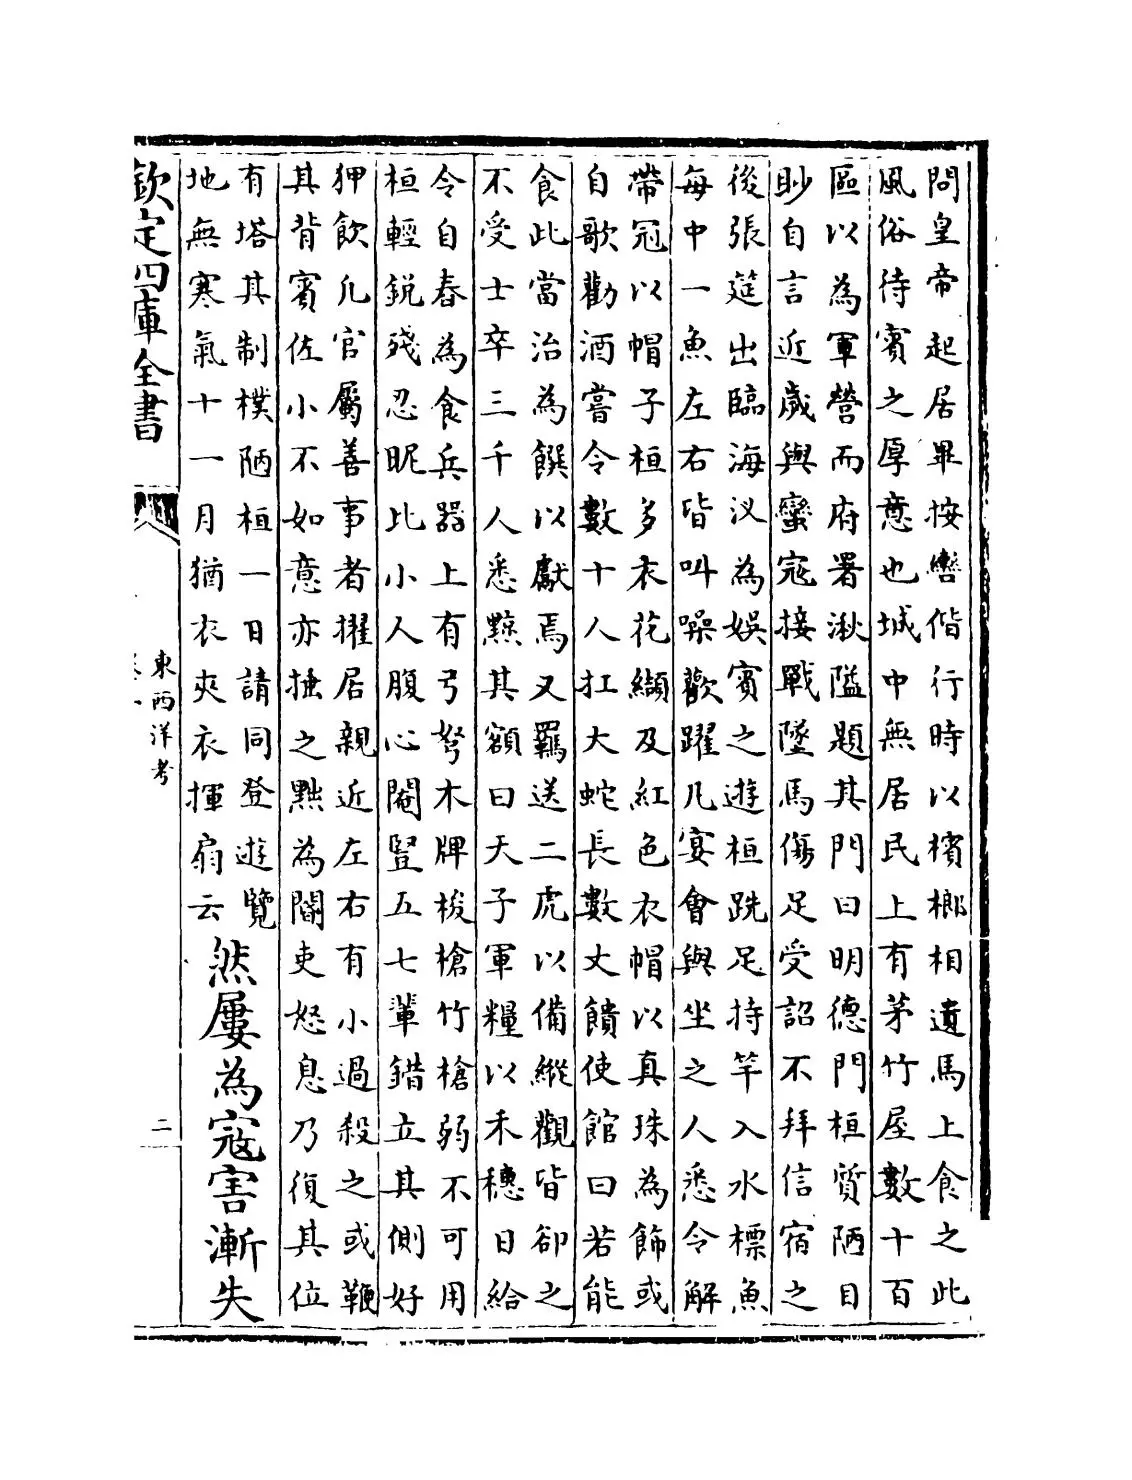 問皇帝起居畢按轡偕行時以檳榔相遺馬上食之此
風俗待賓之厚意也城中無居民止有茅竹屋數十百
區以為軍營而府署湫隘題其門曰明德門桓質陋目
眇自言近歲與蠻寇接戰墜馬傷足受詔不拜信宿之
後張筵出臨海汊為娛賓之遊桓跣足持竿入水標魚
每中一魚左右皆叫噪歡躍凡宴會與坐之人悉令解
帶冠以帽子桓多衣花纈及紅色衣帽以真珠為飾或
自歌勸酒嘗令數十人扛大蛇長數丈饋使館曰若能
食此當治為饌以獻焉又羈送二虎以備縱觀皆卻之
不受士卒三千人悉黥其額曰天子軍糧以禾穗日給
令自舂為食兵器止有弓弩木牌梭槍竹槍弱不可用
桓輕銳殘忍昵比小人腹心閹豎五七輩錯立其側好
狎飲凡官屬善事者擢居親近左右有小過殺之或鞭
其背賓佐小不如意亦捶之黜為閽吏怒息乃復其位
有塔其制樸陋桓一日請同登遊覽
地無寒氣十一月猶衣夾衣揮扇云
然屢為寇害漸失
欽定四庫全書
東西洋考
二